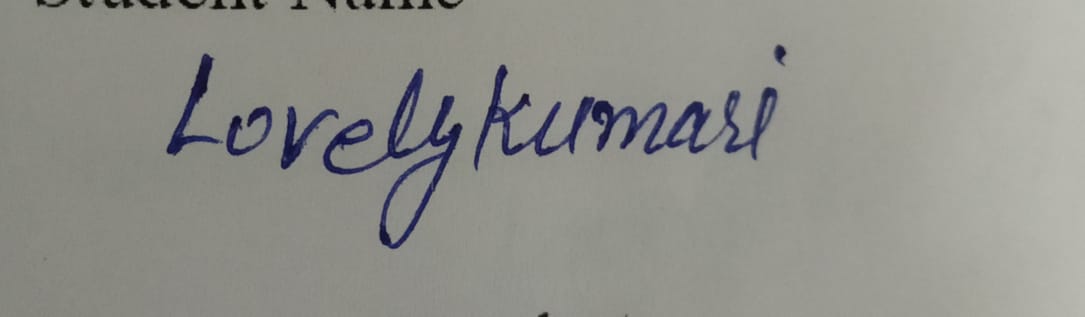 Student Name
Lovely Kumari